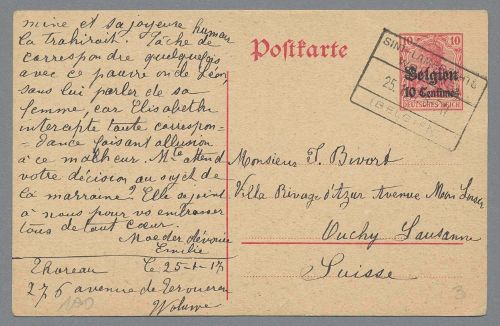 mine et sa joyeuse humeur
la trahirait. Tâche de
correspondre quelquefois
avec ce pauvre on de Léon,
sans lui parler de sa
femme, car Elisabeth
intercepte toute correspon=
=dance faisant allusion
à ce malheur. Mte attend
votre décision au sujet de
la marraine? Elle se joint
à nous pour vs embrasser
tous de tout cœur.
Moeder dévouée
Emilie
Thoreau le 25-1-17
276 avenue de Tervueren
Woluwe
Postkarte
10 10
Belgien
10 Centimes
DEUTSCHES REICH
SINT-LAMBRECHTS
25.
(BELGIEN)
Monsieur J. Bivort
Villa Rivage d'Azur Avenue Mon Loisir
Ouchy Lausanne
Suisse
3